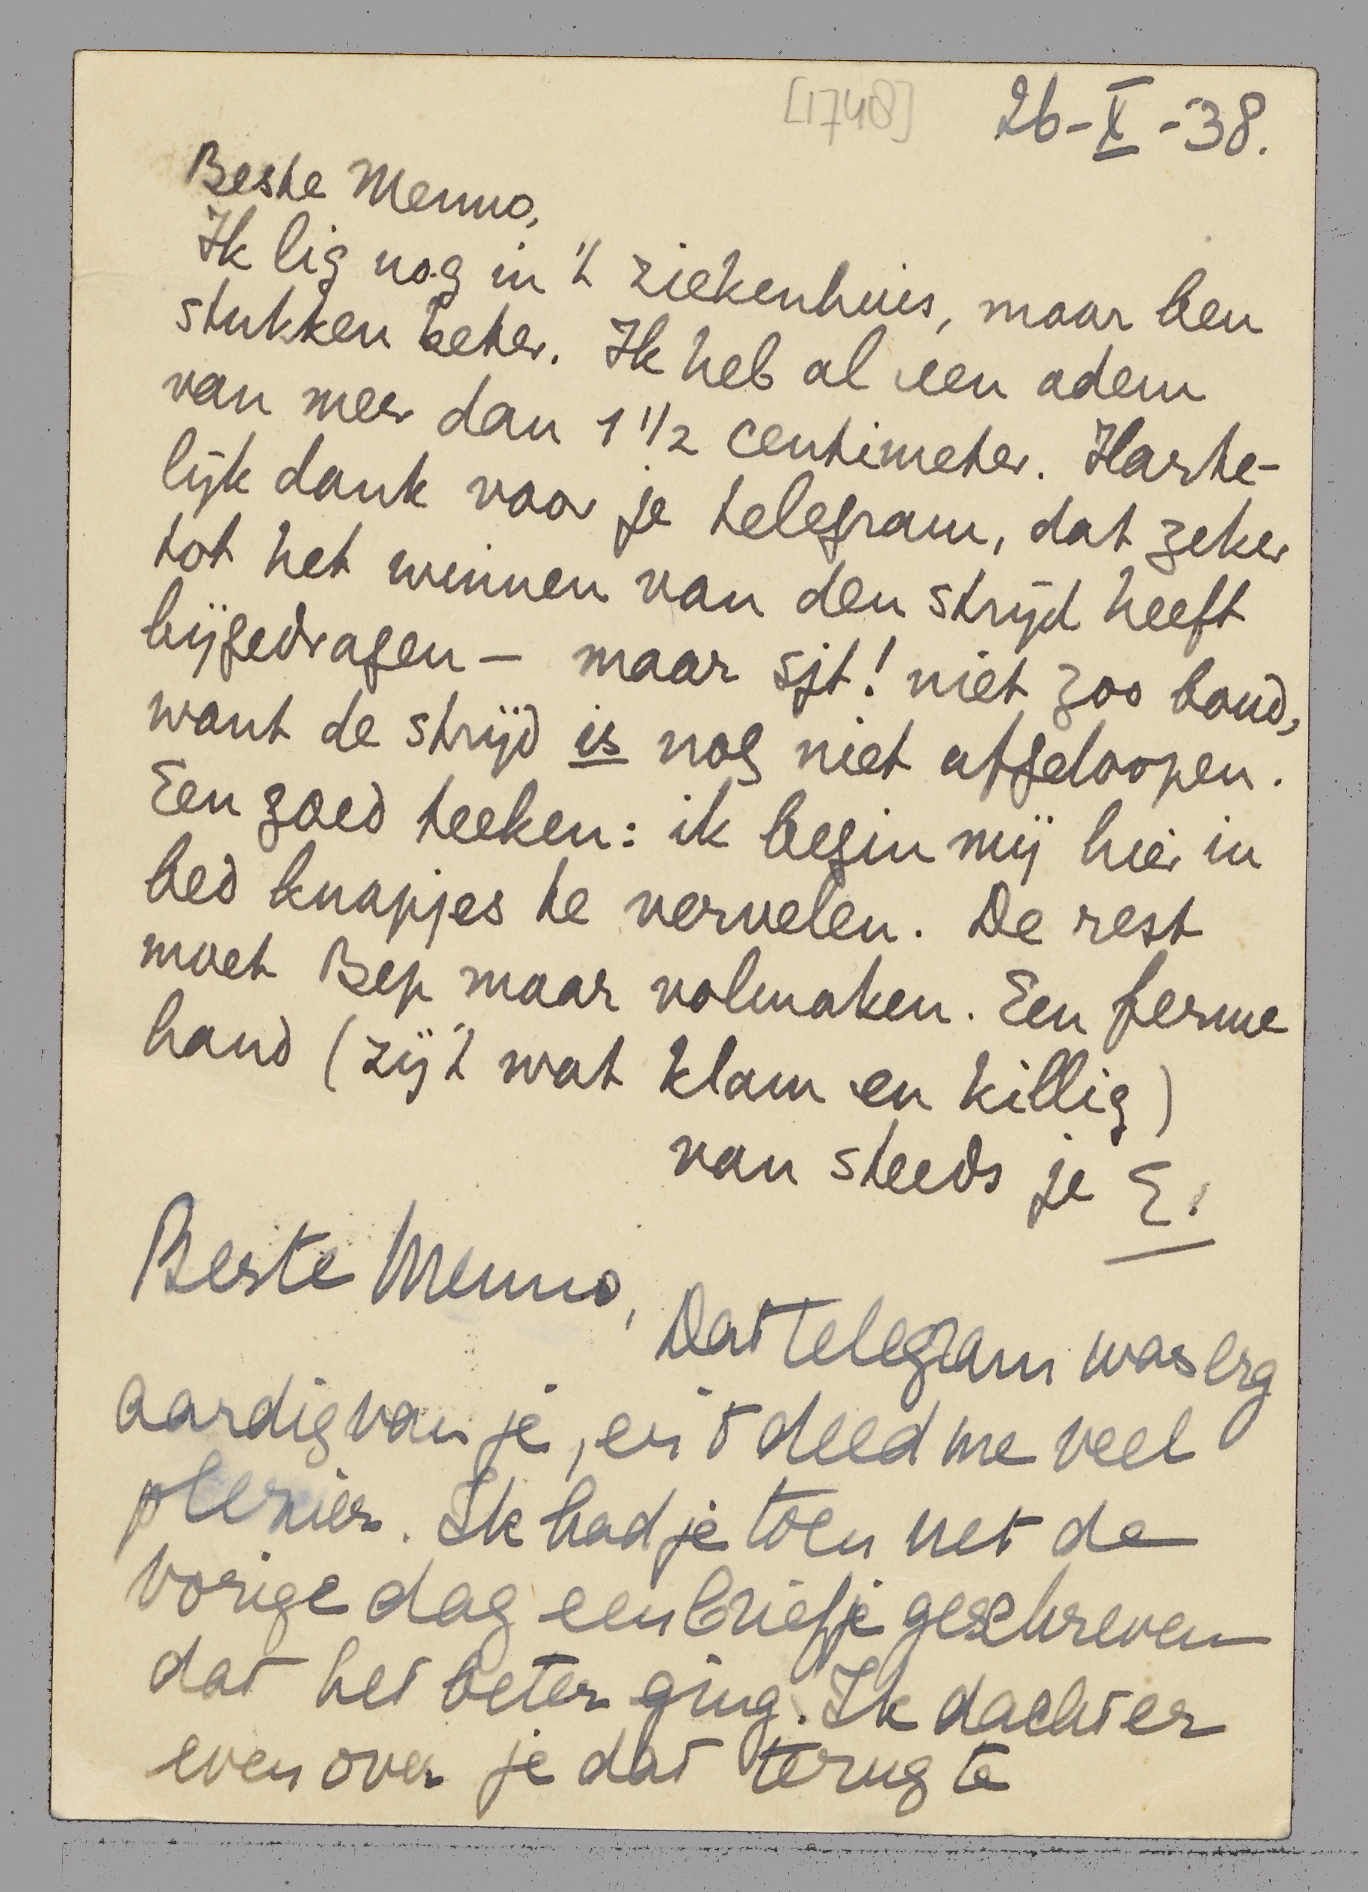 [1748] 26-X-38.
Beste Menno,
Ik lig nog in 't ziekenhuis, maar ben
stukken beter. Ik heb al een adem
van meer dan 1 1/2 centimeter. Harte-
lijk dank voor je telegram, dat zeker
tot het winnen van den strijd heeft
bijgedragen — maar sjt! niet zoo loud,
want de strijd is nog niet afgeloopen.
Een goed teeken: ik begin mij hier in
bed knapjes te vervelen. De rest
moet Bep maar volmaken. Een ferme
hand (zij 't wat klam en killig)
van steeds je E.
Beste Menno,
Dat telegram was erg
aardig van je, en 't deed me veel
plezier. Ik had je toen net de
vorige dag een briefje geschreven
dat het beter ging. Ik dacht er
even over je dat terug te